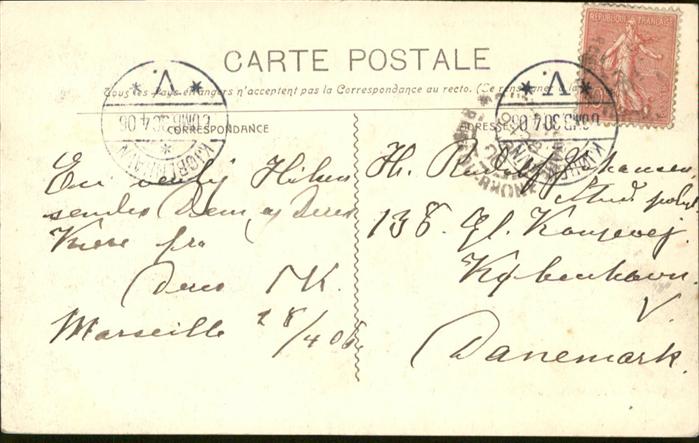 REPUBLIQUE FRANÇAISE
CARTE POSTALE
Tous les pays étrangers n'acceptent pas la Correspondance au recto. (Se renseigner à la
CORRESPONDANCE
ADRESSE
KJØBENHAVN
V.
2.OMB 30.4.06
KJØBENHAVN
V.
OMB 30.4.06
En venlig Hilsen
sendes Dem, og Deres
Kære fra
Deres
Marseille 28/4 06.
Hr. Rudolf Johansen,
Stud. polyt
138. Gl. Kongevej
København.
V.
Danemark.